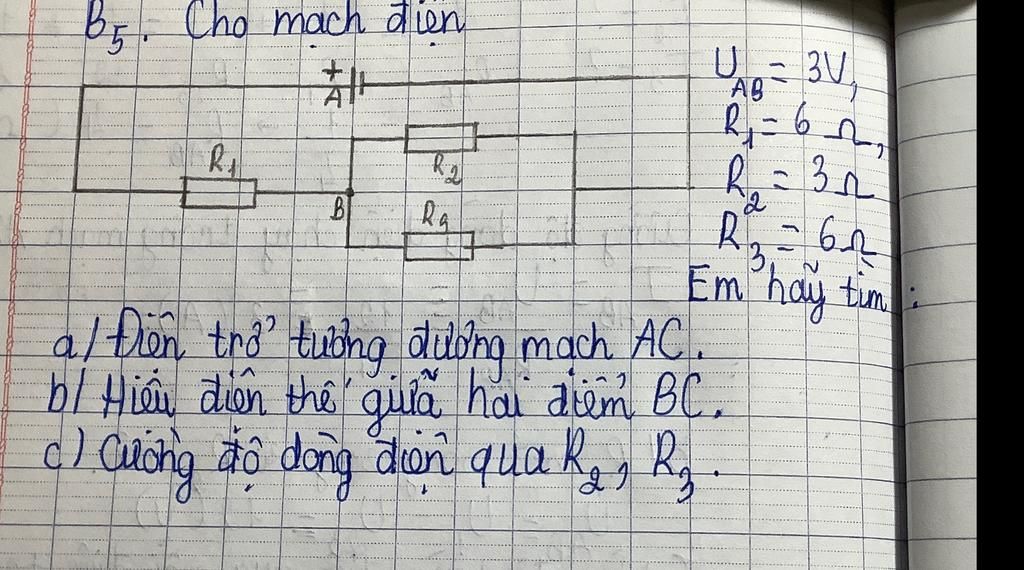 B5. Cho mạch điện
+
A
R1
R2
B
R3
UAB = 3V,
R1 = 6 Ω,
R2 = 3Ω
R3 = 6Ω
Em hãy tìm :
a/ Điện trở tương đương mạch AC.
b/ Hiệu điện thế giữa hai điểm BC.
c) Cường độ dòng điện qua R2, R3.